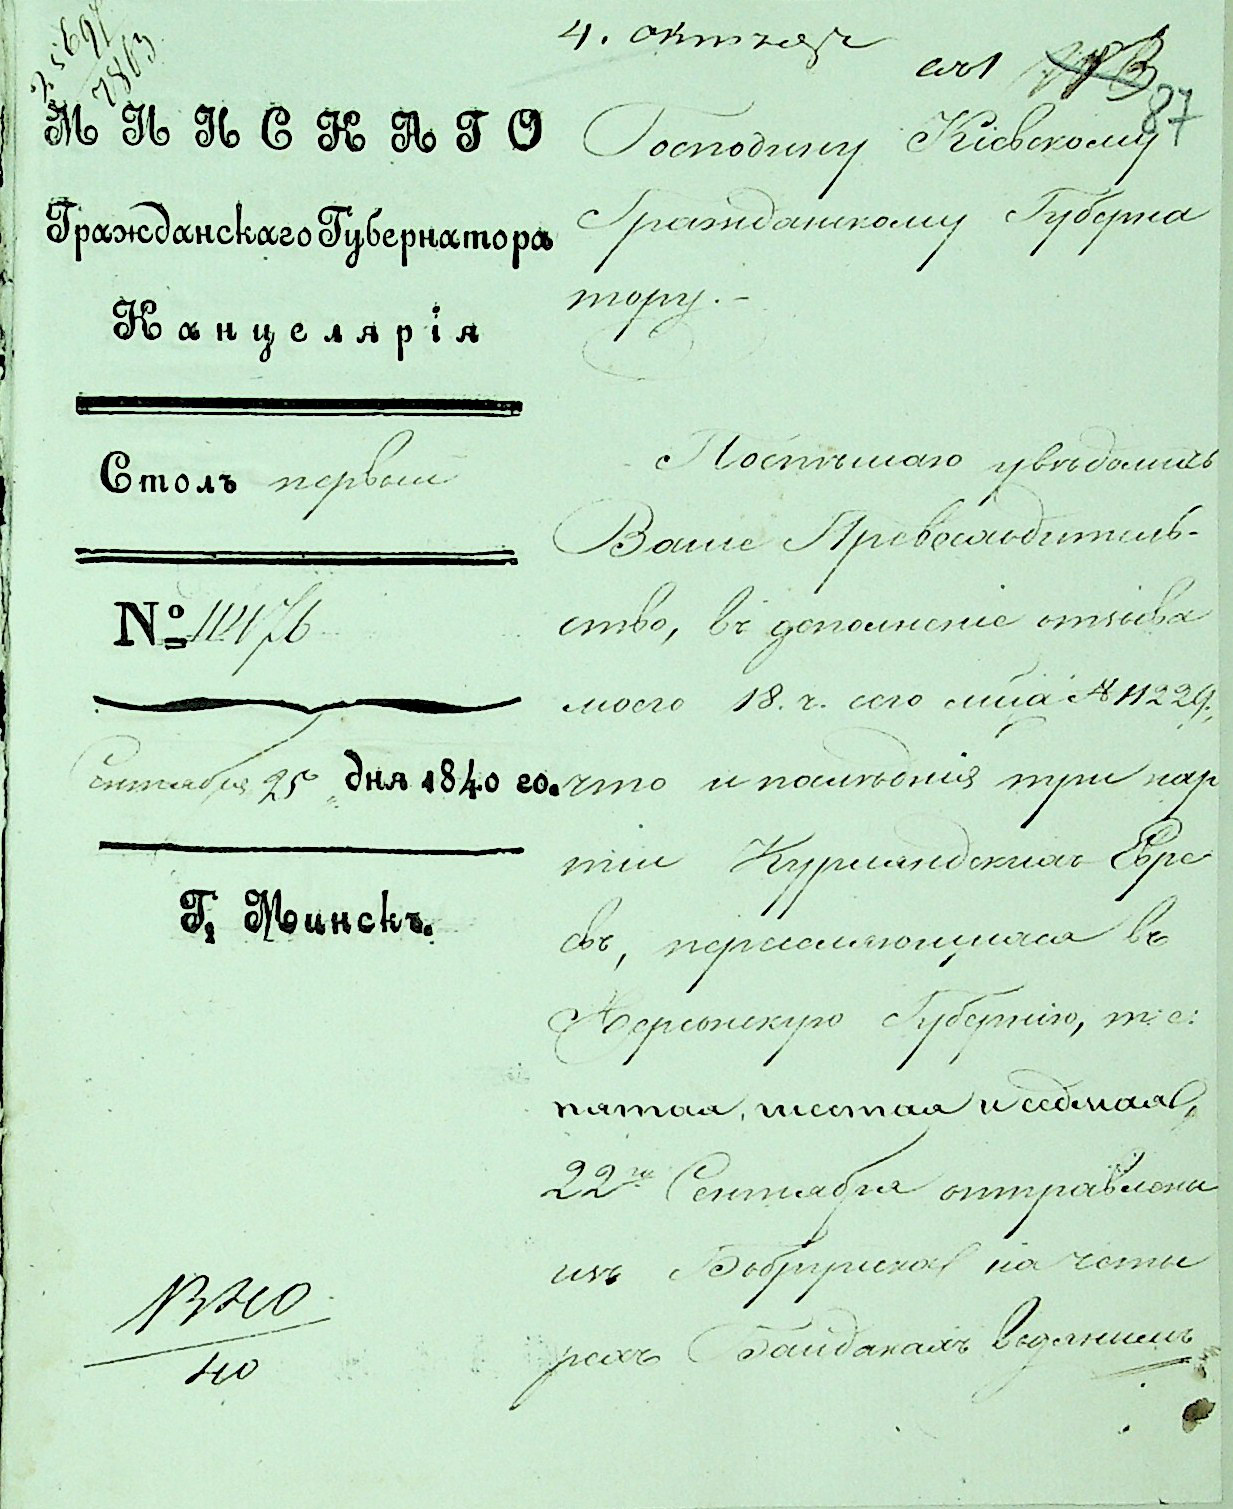 4. октября
87
МИНСКАГО
Гражданскаго Губернатора
Канцелярія
Столъ первый
№ 11476
Сентября 25 дня 1840 го.
Г, Минскъ.
Господину Кіевскому
Гражданскому Губерна
тору.-
Поспѣшаю увѣдомить
Ваше Превосходитель-
ство, въ дополненіе отзыва
моего 18. ч. сего мца № 11229.,
что и послѣднія три пар
тіи Курляндскихъ Евре
евъ, переселяющихся въ
Херсонскую Губернію, т: е:
пятая, шестая и седмая,
22го Сентября отправлены
изъ Бобруйска на четы
рехъ Байдакахъ водянымъ
40